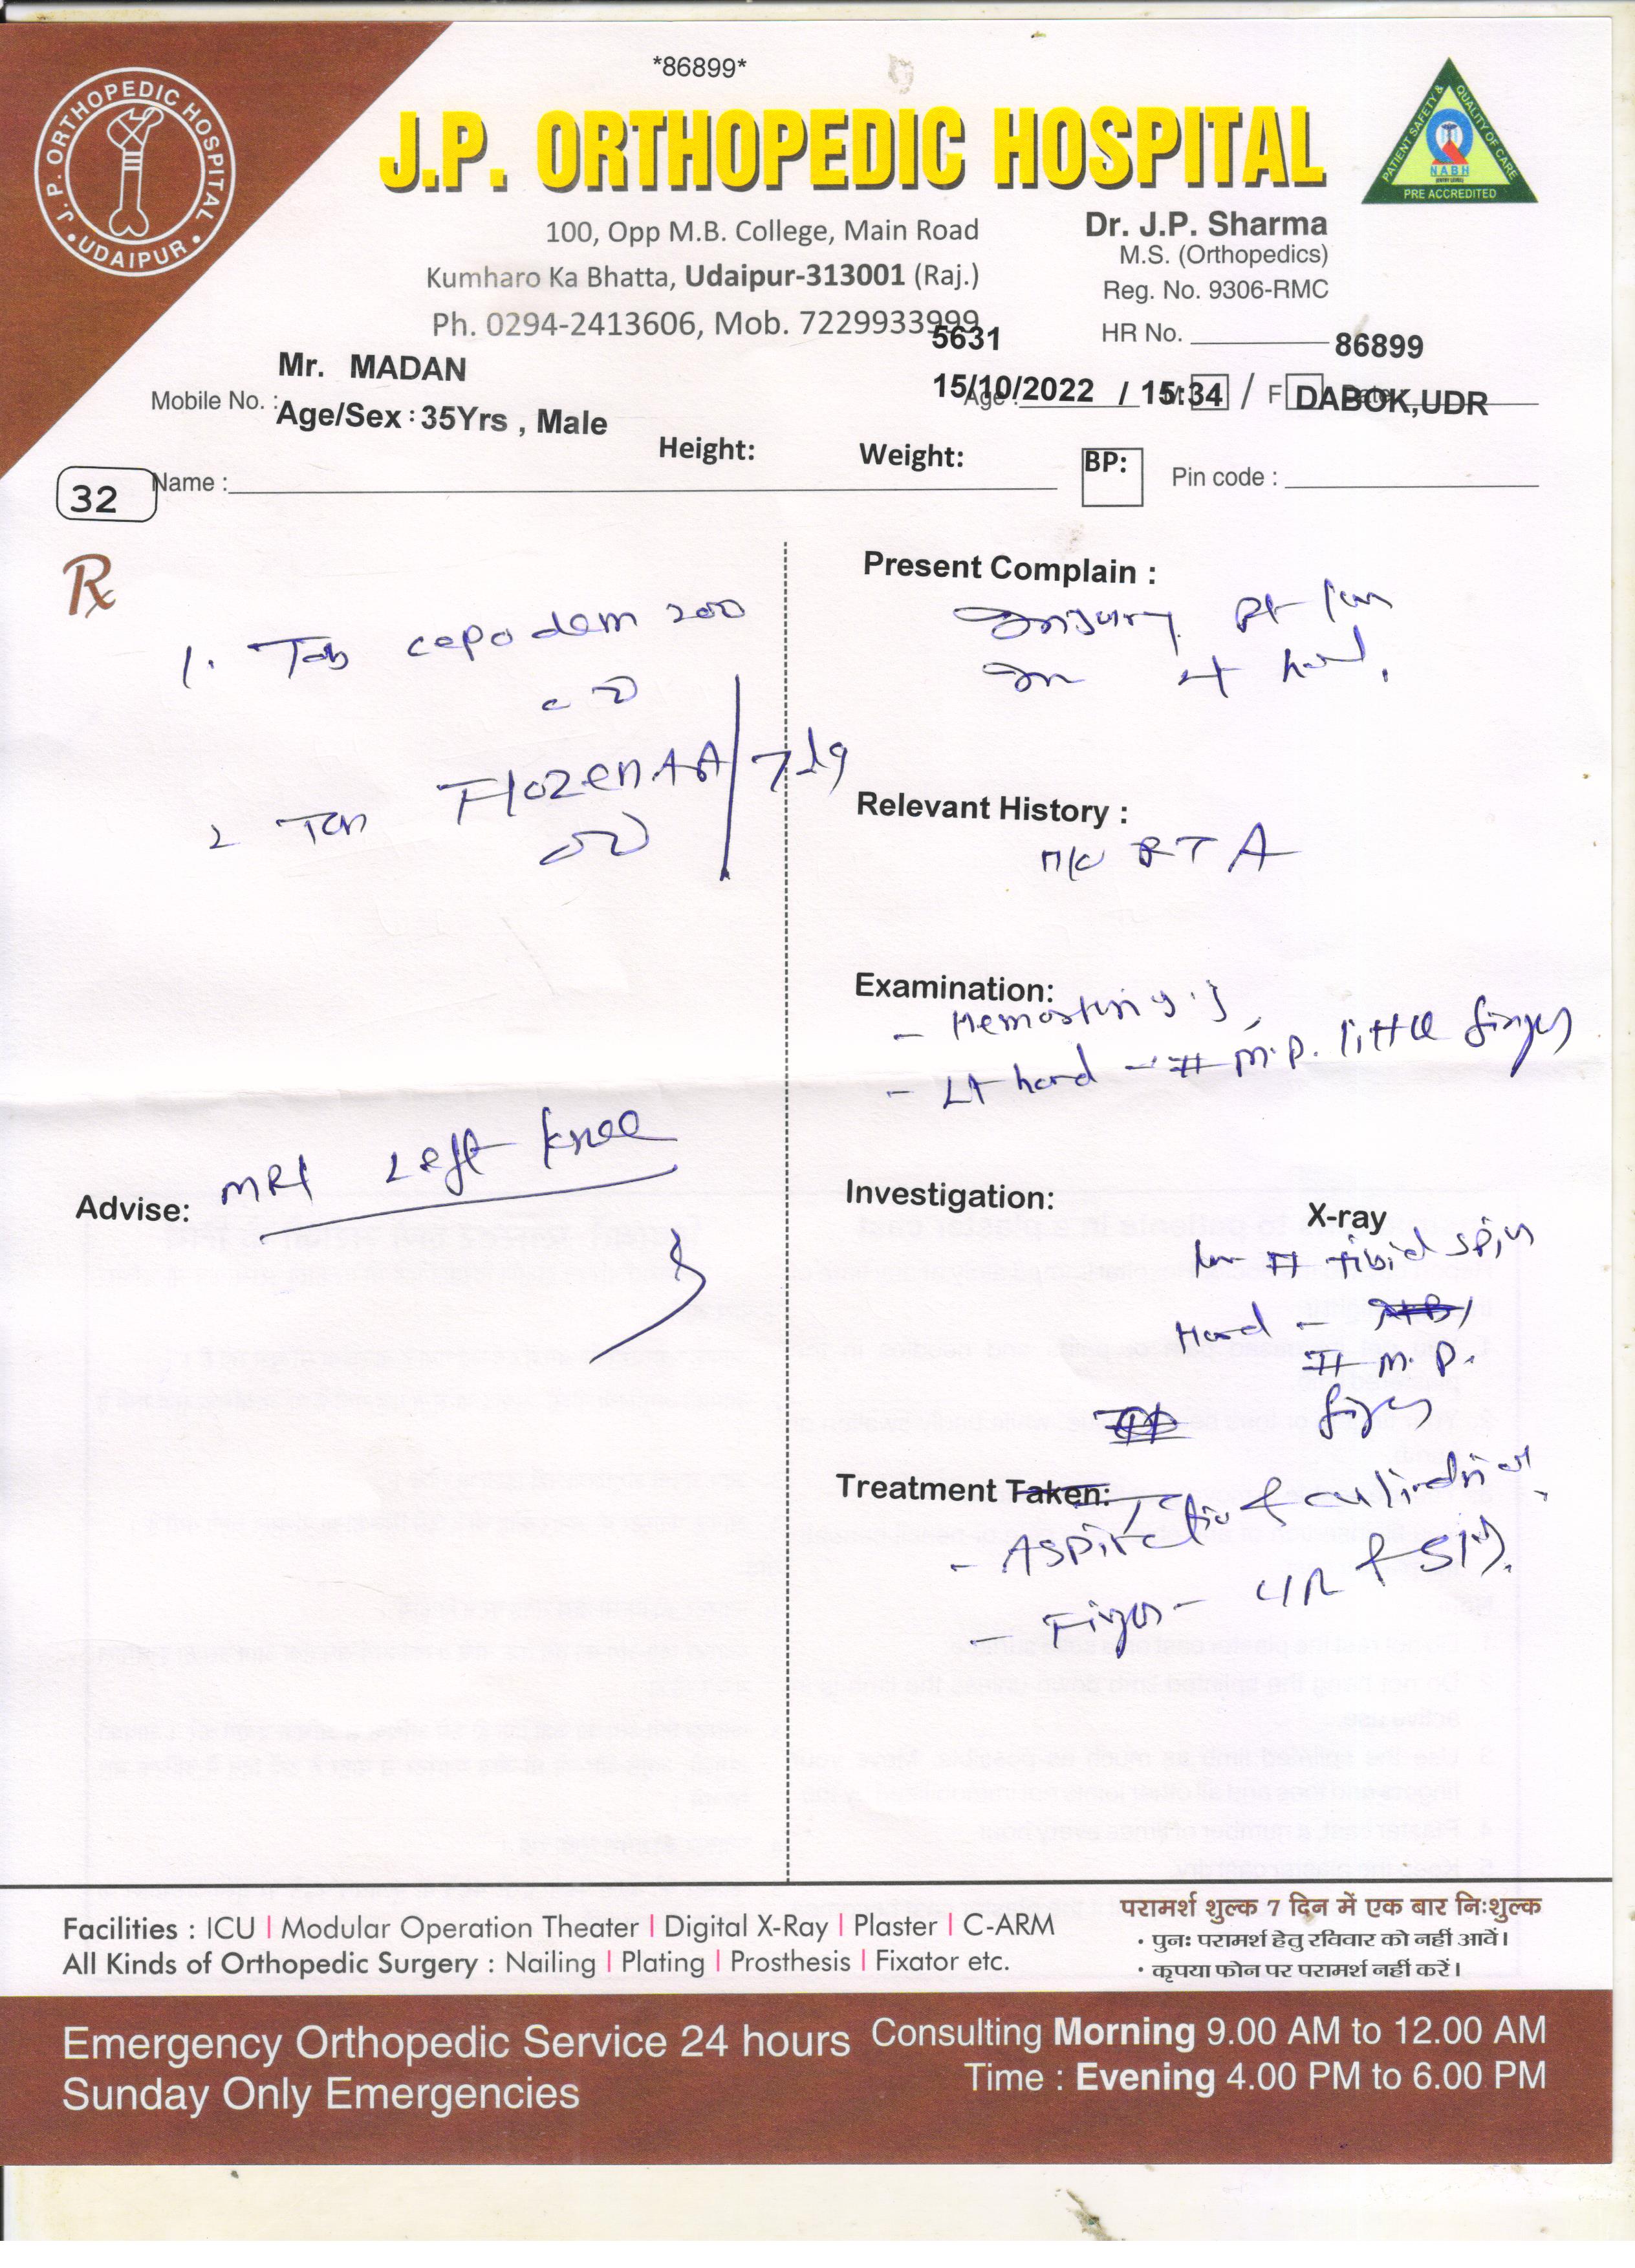 *86899*
J.P. ORTHOPEDIC HOSPITAL
J. P. ORTHOPEDIC HOSPITAL
• UDAIPUR •
PATIENT SAFETY & QUALITY OF CARE
NABH
PRE ACCREDITED
100, Opp M.B. College, Main Road
Kumharo Ka Bhatta, Udaipur-313001 (Raj.)
Ph. 0294-2413606, Mob. 7229933999
Dr. J.P. Sharma
M.S. (Orthopedics)
Reg. No. 9306-RMC
HR No. 86899
5631
Mr. MADAN
15/10/2022 / 15:34
/ F
DABOK,UDR
Mobile No. :
Age/Sex : 35Yrs , Male
Age :
Date
Height: Weight: BP:
Name :
Pin code :
32
Rx
1. Tab cepodem 200
2 Tab FlozenAA
Advise: MRI Left knee
Present Complain :
Injury
hand.
Relevant History :
RTA
Examination:
- Lt hand - # M.P. little finger
Investigation:
X-ray
# tibial spin
Hand -
# M.P.
finger
Treatment Taken:
- Aspiration &
- Finger -
Facilities : ICU | Modular Operation Theater | Digital X-Ray | Plaster | C-ARM
All Kinds of Orthopedic Surgery : Nailing | Plating | Prosthesis | Fixator etc.
परामर्श शुल्क 7 दिन में एक बार निःशुल्क
• पुनः परामर्श हेतु रविवार को नहीं आवें।
• कृपया फोन पर परामर्श नहीं करें।
Emergency Orthopedic Service 24 hours
Sunday Only Emergencies
Consulting Morning 9.00 AM to 12.00 AM
Time : Evening 4.00 PM to 6.00 PM